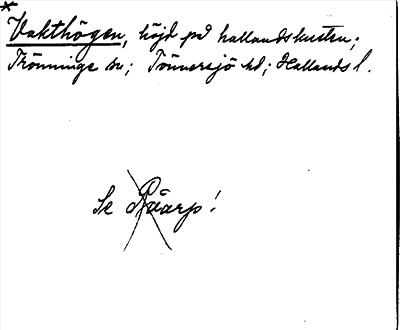 *
Vakthögen, höjd på hallandskusten;
Trönninge sn; Tönnersjö hd; Hallands l.
Se Påarp!